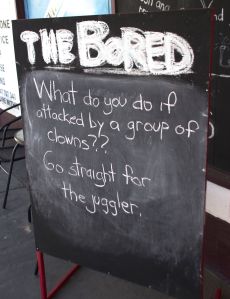 THE BORED
What do you do if
attacked by a group of
clowns??
Go straight for
the juggler.